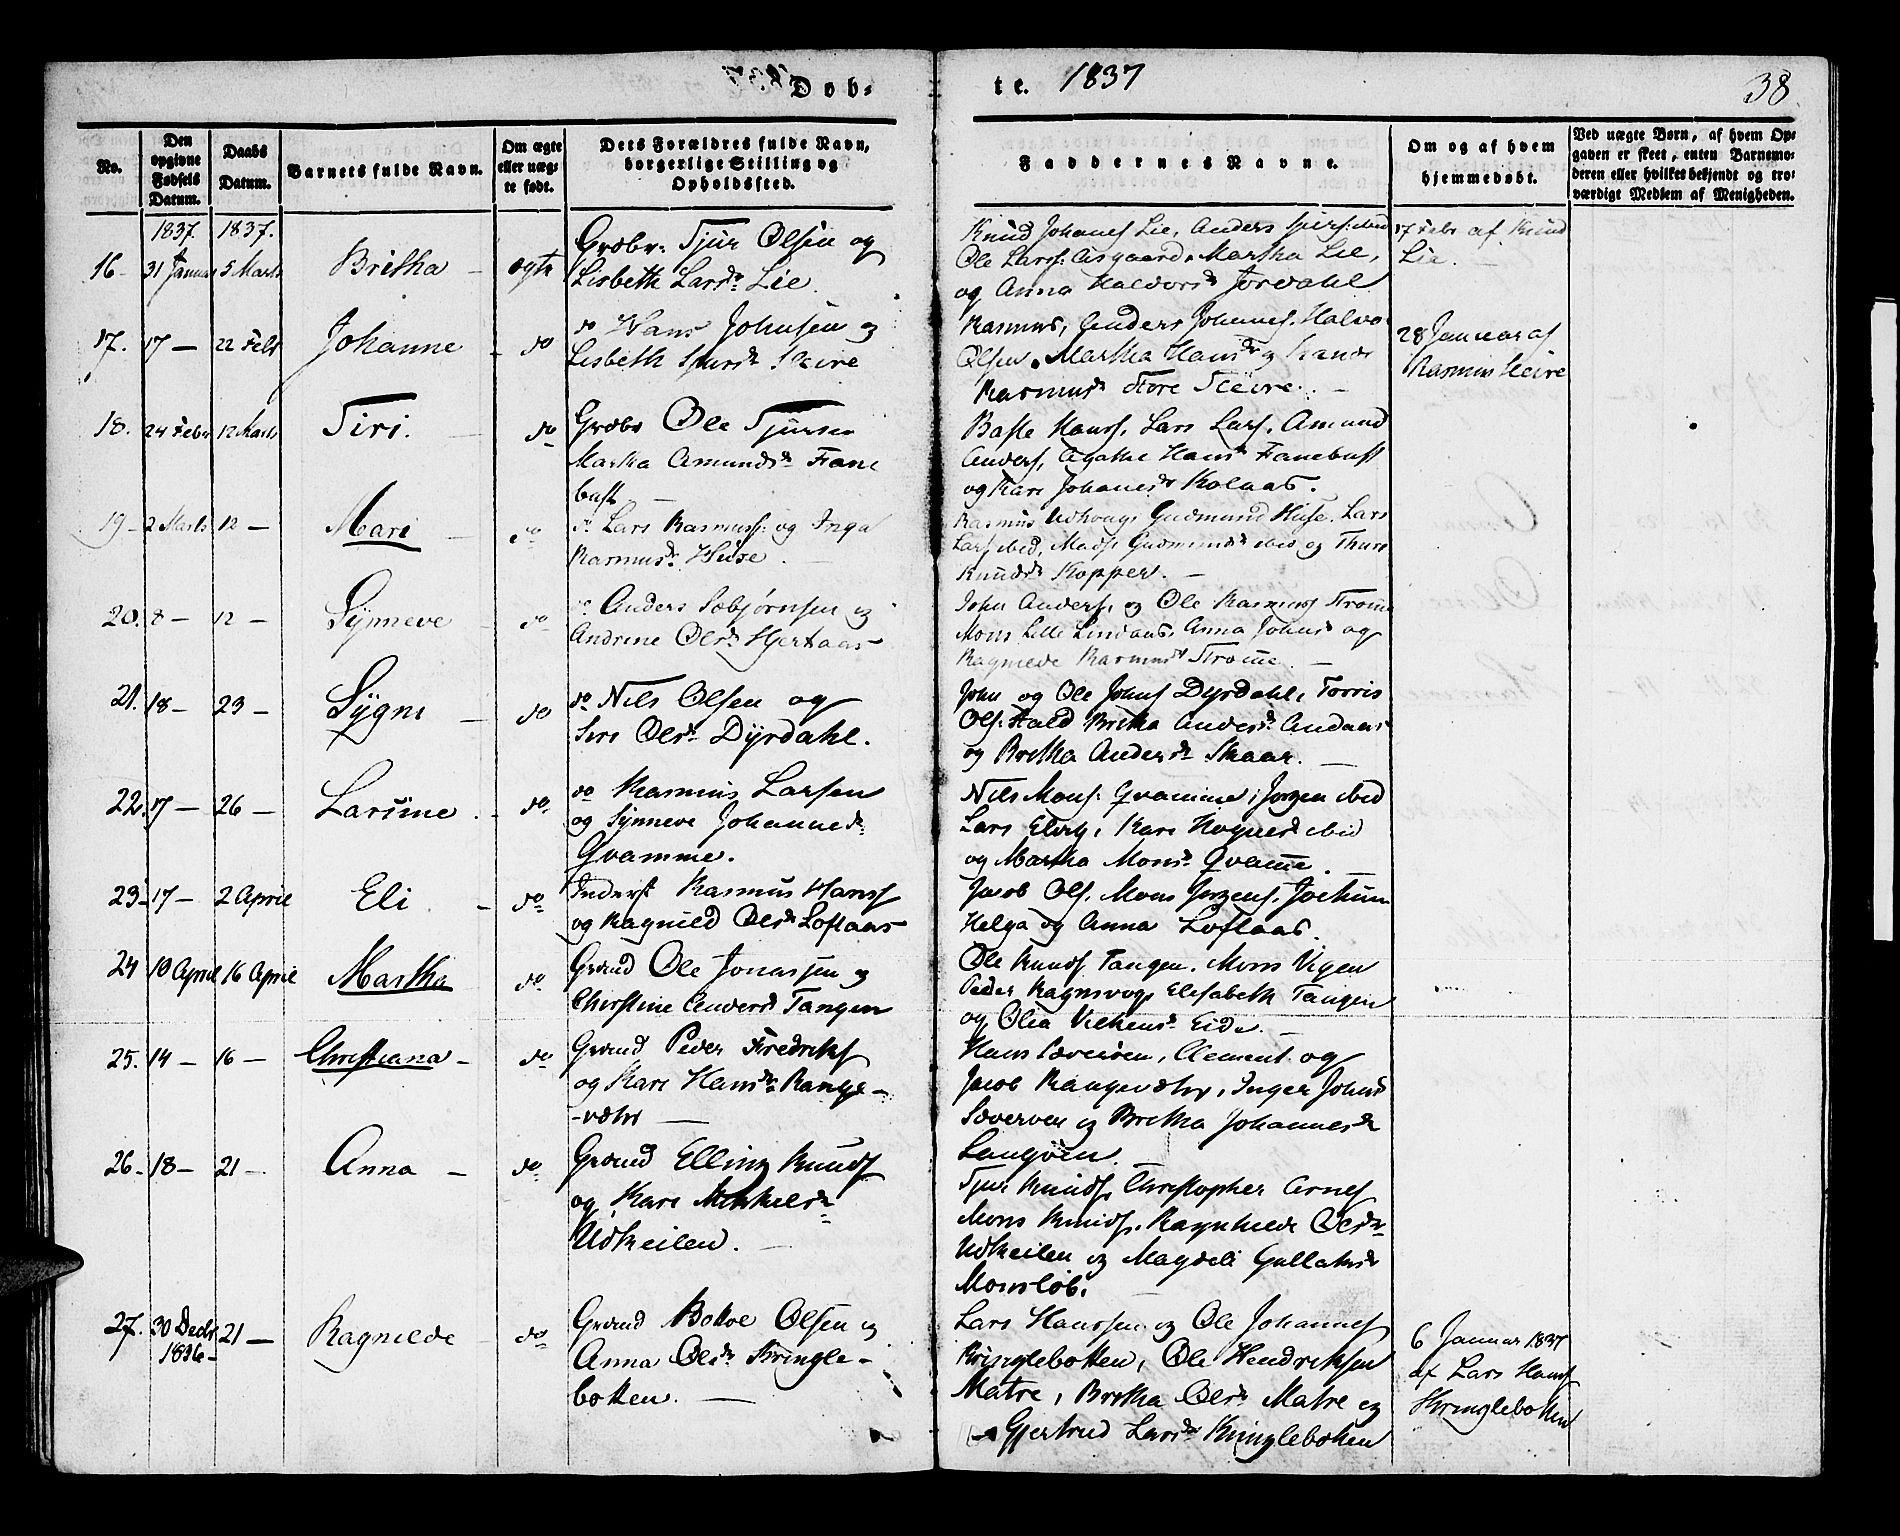 Døb-
te. 1837
38
No.
Den opgivne Fødsels Datum.
Daabs Datum.
Barnets fulde Navn.
Om ægte eller uægte født.
Dets Forældres fulde Navn, borgerlige Stilling og Opholdssted.
Faddernes Navne.
Om og af hvem hjemmedøbt.
Ved uægte Børn, af hvem Opgaven er skeet, enten Barnemoderen eller hvilket bekjendt og troværdigt Medlem af Menigheden.
1837. 1837.
16- 31 Januar 5 Marts Britha - ægte
Grbr. Tjur Olsen og
Lisbeth Larsd. Lie.
Knud Johanes Lie, Anders ibid
Ole Larss. Aasgaard, Martha Lie,
og Anna Halvorsd. Jordahl
17 Febr af Knud
Lie.
17. 17 - 22 Febr Johanne - do
do Hans Johnsen og
Lisbeth
Rasmus, Anders Johannes. Halvo
Olsen. Martha Hansd. og
Rasmusd. Store
28 Januar af
Rasmus
18. 24 Febr 12 Marts Siri. do
Grbr Ole Tjursen
Martha Amundsd. Fane
bust
Baste Hanss, Lars Larss. Amund
Anderss, Agathe Hansd. Fanebust
og Kari Johanesd. Kolaas.
19- 2 Marts 12 - Mari - do
do Lars Rasmuss: og Inga
Rasmusd. Huse.
Rasmus Gudmund Huse. Lars
Larss ibid, Mads Gudmundsd. ibid og
Knudsd. Kopper.
20. 8 - 12 - Synneve do
do Anders Sæbjørnsen og
Andrine Olsd. Hjertaas
John Anderss, og Ole Rasmuss Strømme
Mons Lille Lindaas, Anna Johnsd og
Ragnilde Rasmusd Strømme.
21. 18 - 23 - Sygni - do
do Nils Olsen og
Siri Olsd. Dyrdahl.
John og Ole Johns Dyrdahl, Torris
Ols. Britha Andersd. Andaas
og Britha Andersd. Skaar.
22. 17 - 26 - Larsine. do
do Rasmus Larsen
og Synneve Johannesd.
Qvamme.
Nils Mons: Qvamme, Jorgen ibid
Lars Elvig, Kari ibid
og Martha Monsd. Qvamme
23- 17 - 2 April Eli - do
Inderst Rasmus Hanss
og Ragnild Olsd. Loftaas
Jacob Ols. Mons Jorgens. Jochum
Helga og Anna Loftaas.
24 10 April 16 April Martha do
Grmd Ole Jonassen og
Christine Andersd Tangen
Ole Knuds Tangen. Mons Vegen
Peder Elisabeth Tangen
og Olia Eide.
25. 14 - 16 - Christiana - do
Grmd Peder Fredriks
og Kari Hansd. Range-
-vætter
Hans Clement og
Jacob Inger Johnsd
og Britha Johannesd
Langøen.
26 - 18 - 21 - Anna - do
Grmd Elling Knuds
og Kari Mikkelsd.
Udkeilen.
Tjur Knuds, Christopher Arnes
Mons Knuds. Ragnhilde Olsd.
Udkeilen og Magdeli Gullaksd
Monsløb.
27. 30 Decbr 1836- 21 - Ragnilde do
Grmd Botolv Olsen og
Anna Olsd. Kringle-
botten.
Lars Hanssen og Ole Johannes
Kringlebotten, Ole Hendriksen
Matre, Britha Olsd. Matre og
Gjertrud Larsd Kringlebotten
6 Januar 1837
af Lars Hanss
Kringlebotten